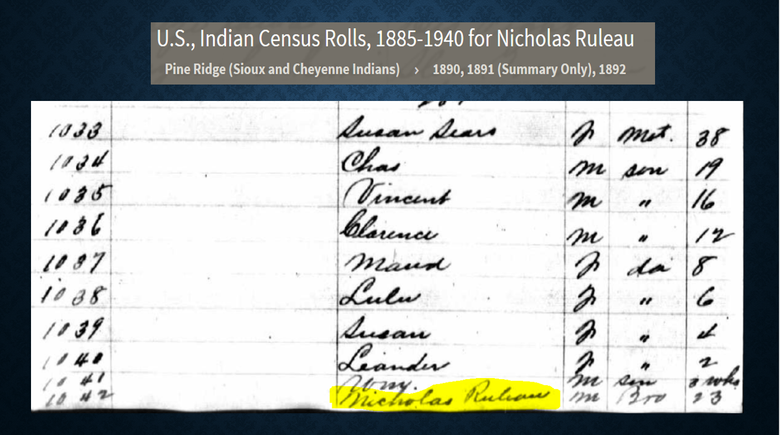 U.S., Indian Census Rolls, 1885-1940 for Nicholas Ruleau
Pine Ridge (Sioux and Cheyenne Indians) › 1890, 1891 (Summary Only), 1892
1033 Susan Sears F Mot. 38
1034 Chas M son 19
1035 Vincent M " 16
1036 Clarence M " 12
1037 Maud F da 8
1038 Lulu F " 6
1039 Susan F " 4
1040 Leander F " 2
1041 Wm. M son wks
1042 Nicholas Ruleau M Bro 23